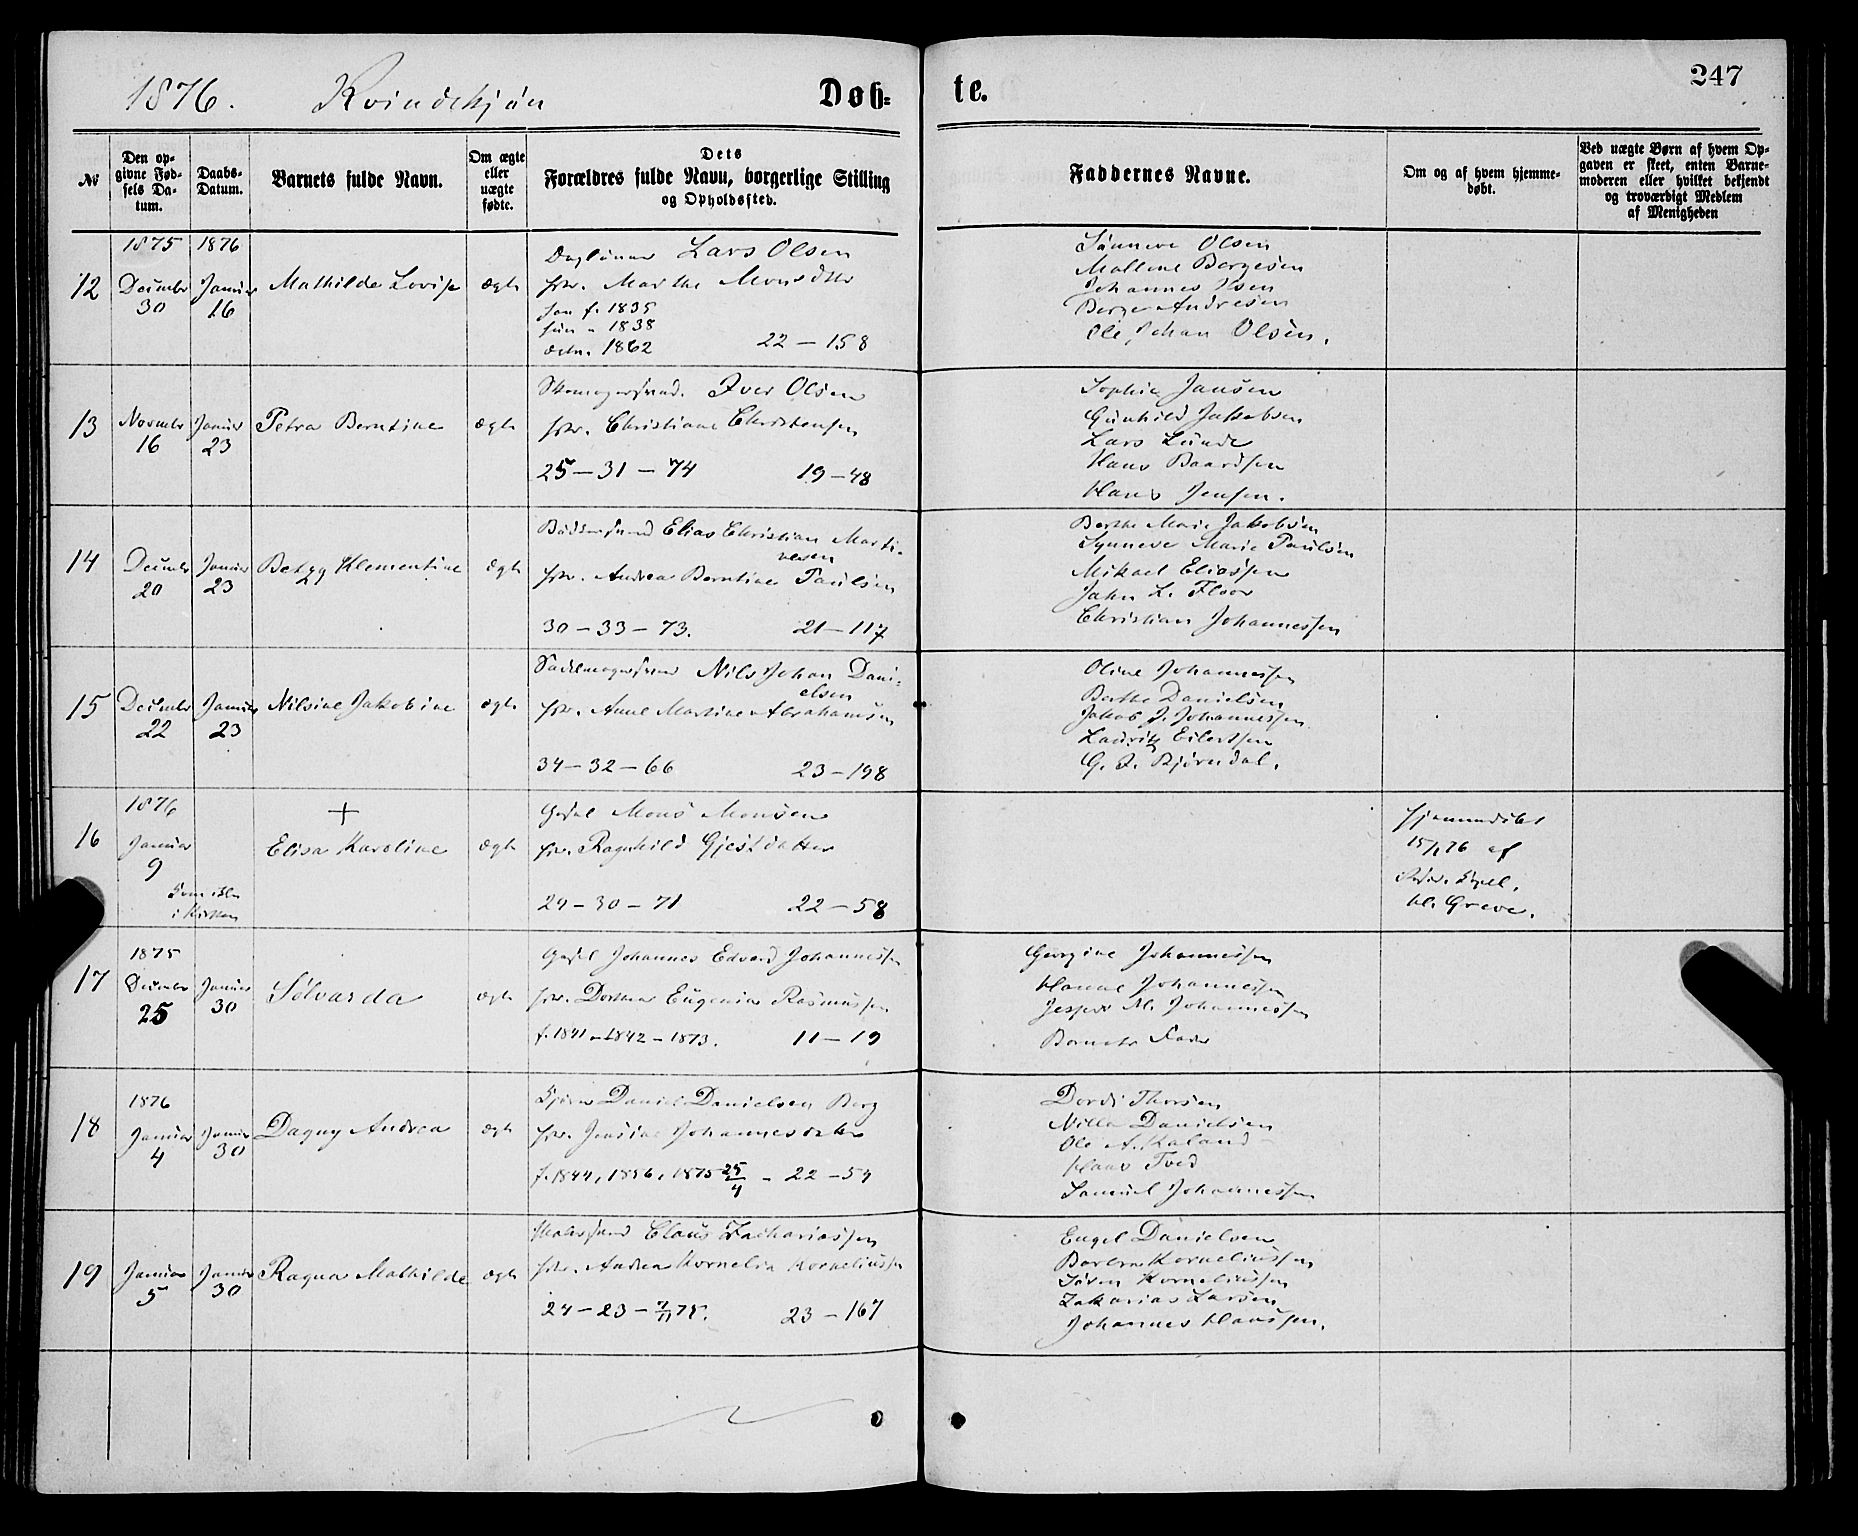 1876. Kvindekjøn Døb-
te. 247
№
Den op-
givne Fød-
sels Da-
tum.
Daabs-
Datum.
Barnets fulde Navn.
Om ægte
eller
uægte
fødte.
Dets
Forældres fulde Navn, borgerlige Stilling
og Opholdssted.
Faddernes Navne.
Om og af hvem hjemme-
døbt.
Ved uægte Børn af hvem Op-
gaven er skeet, enten Barne-
moderen eller hvilket bekjendt
og troværdigt Medlem
af Menigheden
1875 1876
12 December 30 Januar 16 Mathilde Lovise ægte
Lars Olsen
Marthe Monsdtr
1835
1838
1862 22 - 158
Sünneve Olsen
Mallene Børgesen
Johannes Olsen
Børge Andresen
Ole Johan Olsen.
13 November 16 Januar 23 Petra Berntine ægte
Skomagersvend. Iver Olsen
Christiane Christensen
25 - 31 - 74 19 - 48
Sophie Jansen
Gunhild Jakobsen
Lars Lunde
Hans Baardsen
Hans Jensen.
14 December 20 Januar 23 Betzy Klementine ægte
Bødkersvend Elias Christian Marti-
nesen
Andrea Berntine Paulsen
30 - 33 - 73. 21 - 117
Berthe Marie Jakobsen
Synneve Marie Paulsen
Mikael Eliassen
John L. Floor
Christian Johannessen
15 December 22 Januar 23 Nilsine Jakobine ægte
Sadelmagersvend Nils Johan Dani-
elsen
Anne Martine Abrahamsen
34 - 32 - 66 23 - 198
Oline Johannessen
Berthe Danielsen
Jakob J. Johannessen
Lauritz Eilertsen
G. J. Bjørndal.
1876
16 Januar 9 + Elisa Karoline ægte
Mons Monsen
Ragnhild Gjestdatter
29 - 30 - 71 22 - 58
Hjemmedøbt
15/1 76 af
Greve.
i Kirken
1875
17 December 25 Januar 30 Selvarda ægte
Johannes Edvard Johannessen
Dorthea Eugenia Rasmussen
f. 1841 - 1842 - 1873. 11 - 19
Georgine Johannessen
Hanne Johannessen
Jesper M. Johannessen
Barnets Fader
1876
18 Januar 4 Januar 30 Dagny Andrea ægte
Daniel Danielsen Berg
Jensine Johannesdatter
f. 1844, 1856, 1875 25/4 - 22 - 54
Dordi Thorsen
Nille Danielsen
Ole A. Kaland
Hans Tved
Samuel Johannessen
19 Januar 5 Januar 30 Ragna Mathilde ægte
Malersvend Claus Zachariassen
Andrea Kornelia Korneliussen
24 - 23 - 7/11 75. 23 - 167
Engel Danielsen
Barbra Korneliussen
Søren Korneliussen
Zakarias Larsen
Johannes Hanssen.